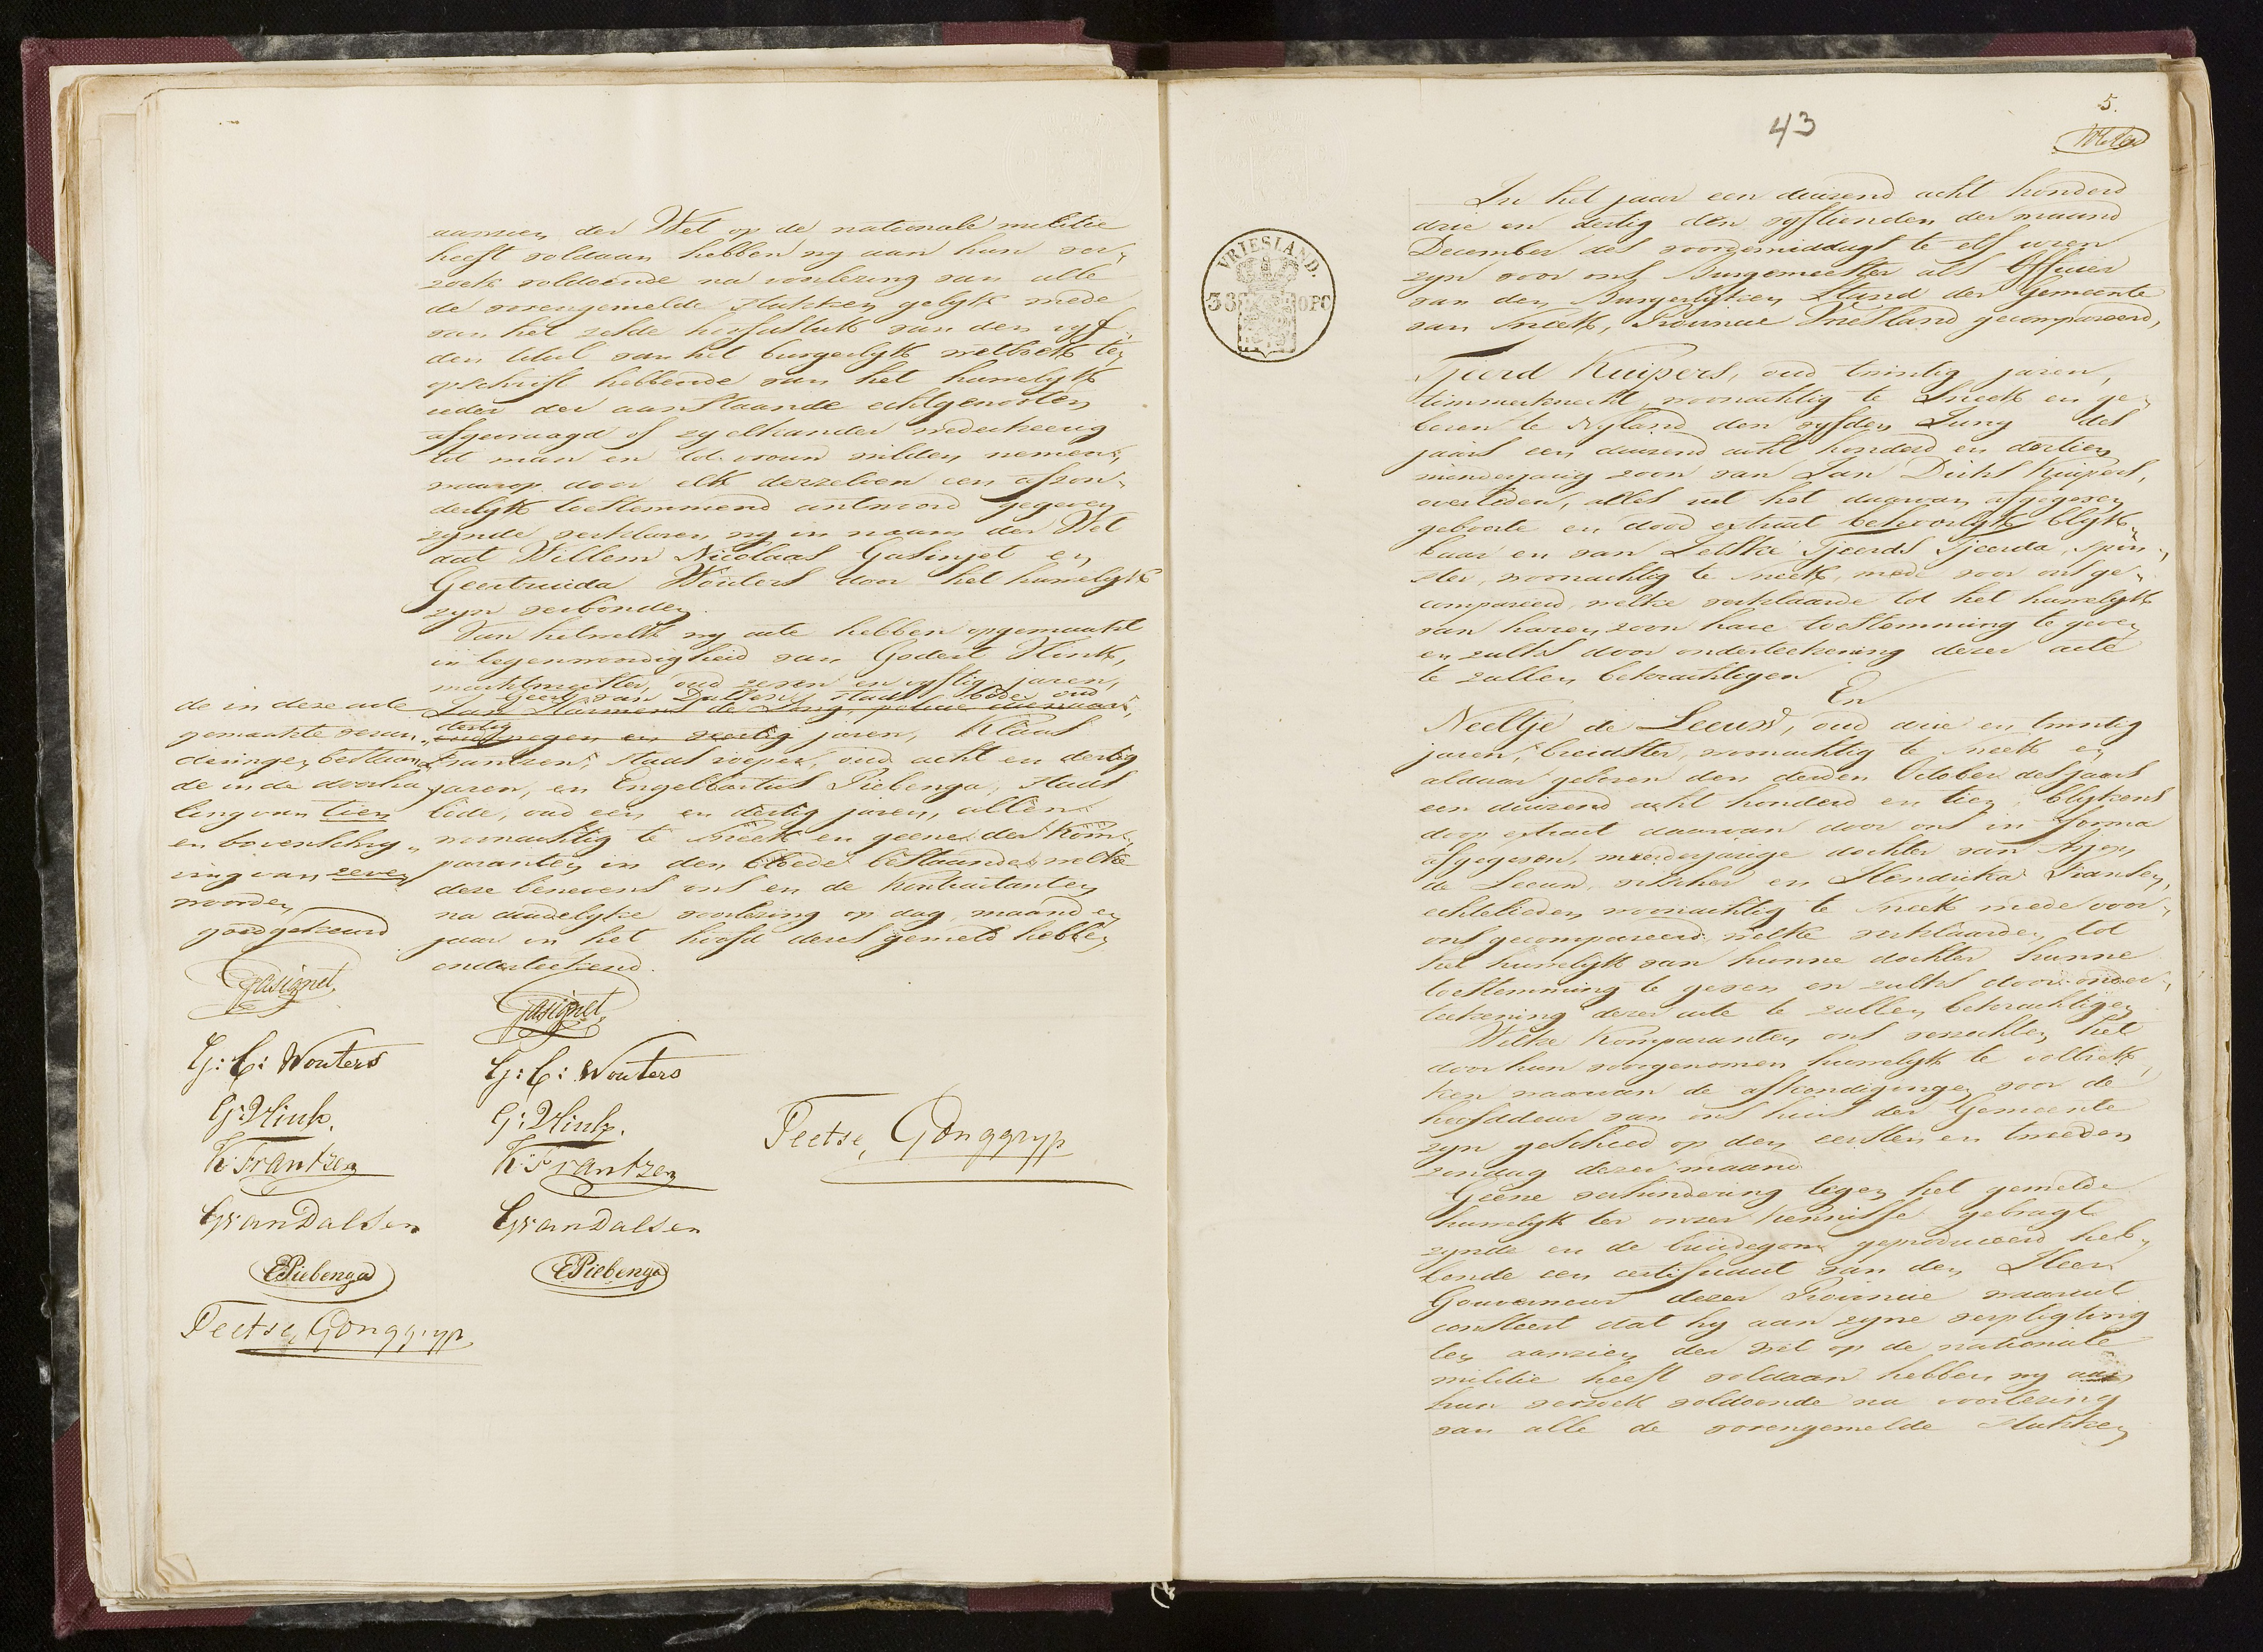 aanzien der Wet op de nationale militie
heeft voldaan hebben wy aan hun ver„
zoek voldoende na voorlezing van alle
de vorengemelde stukken gelyk mede
van het zesde hoofdstuk van den vyf„
den titul van het burgerlyk wetboek ten
opschrift hebbende van het huwelyk
ieder der aanstaande echtgenooten
afgevraagd of zy elkander wederkeerig
tot man en tot vrouw wilden nemen,
waarop door elk derzelven een afzon„
derlyk toestemmend antwoord gegeven
zynde verklaren wy in naam der Wet
dat Willem Nicolaas Gasinjet en
Geertruida Wouters door het huwelyk
zyn verbonden.
Van hetwelk wy acte hebben opgemaakt
in tegenwoordigheid van Godert Vlink,
marktmeester, oud zeven en vyftig jaren,
Geert van Dalsen, stads bode, oud
Jan Harmens de Jong, policie dienaar,
dertig
oud negen en veertig jaren, Klaas
Frantzen, stads roeper, oud acht en dertig
jaren, en Engelbartus Piebenga, stads
bode, oud een en dertig jaren, allen
woonachtig te Sneek en geene der Kom„
paranten in den bloede bestaande, welke
deze benevens ons en de Kontractanten
na duidelyke voorlezing op dag, maand en
jaar in het hoofd dezes gemeld hebben
onderteekend.
de in deze acte
gemaakte veran„
deringen bestaan„
de in de doorha„
ling van tien
en bovenschry„
ving van zeven
woorden
goedgekeurd
Gasignet.
G: C: Wouters
G: Vlink.
K: Frantzen
G van Dalsen
E Piebenga
Teetse, Gonggryp
Gasignet,
G: C: Wouters
G: Vlink.
K: Frantzen
G van Dalsen
E Piebenga
Teetse, Gonggryp
43
5.
VRIESLAND.
36 OPC
In het jaar een duizend acht honderd
drie en dertig den vyftienden der maand
December des voordemiddags te elf uren
zyn voor ons Burgemeester als Officier
van den Burgerlyken Stand der Gemeente
van Sneek, Provincie Vriesland gecompareerd,
Tjeerd Kuipers, oud twintig jaren,
timmerknecht, woonachtig te Sneek en ge„
boren te Nyland den vyfden Juny des
jaars een duizend acht honderd en dertien
minderjarig zoon van Jan Dirks Kuipers,
overleden, alles uit het daarvan afgegeven
geboorte en dood extract behoorlyk blyk„
baar en van Letske Tjeerds Tjeerda, spin„
ster, woonachtig te Sneek, mede voor ons ge„
compareerd, welke verklaarde tot het huwelyk
van haren zoon hare toestemming te geven
en zulks door onderteekening dezer acte
te zullen bekrachtigen
En
Neeltje de Leeuw, oud drie en twintig
jaren, breidster, woonachtig te Sneek en
aldaar geboren den derden October des jaars
een duizend acht honderd en tien, blykens
doop extract daarvan door ons in forma
afgegeven, meerderjarige dochter van Arjen
de Leeuw, visscher en Hendrika Fransen,
echtelieden woonachtig te Sneek mede voor
ons gecompareerd, welke verklaarden, tot
het huwelyk van hunne dochter hunne
toestemming te geven en zulks door onder„
teekening dezer acte te zullen bekrachtigen
Welke Komparanten ons verzochten het
door hun voorgenomen huwelyk te voltrek„
ken waarvan de afkondigingen voor de
hoofddeur van ons huis der Gemeente
zyn geschied op den eersten en tweeden
zondag dezer maand
Geene verhindering tegen het gemelde
huwelyk ter onzer kennisse gebragt
zynde en de bruidegom geproduceerd heb„
bende een certificaat van den Heer
Gouverneur dezer Provincie waaruit
consteert dat hy aan zyne verpligting
ten aanzien der wet op de nationale
militie heeft voldaan hebben wy aan
hun verzoek voldoende na voorlezing
van alle de vorengemelde stukken